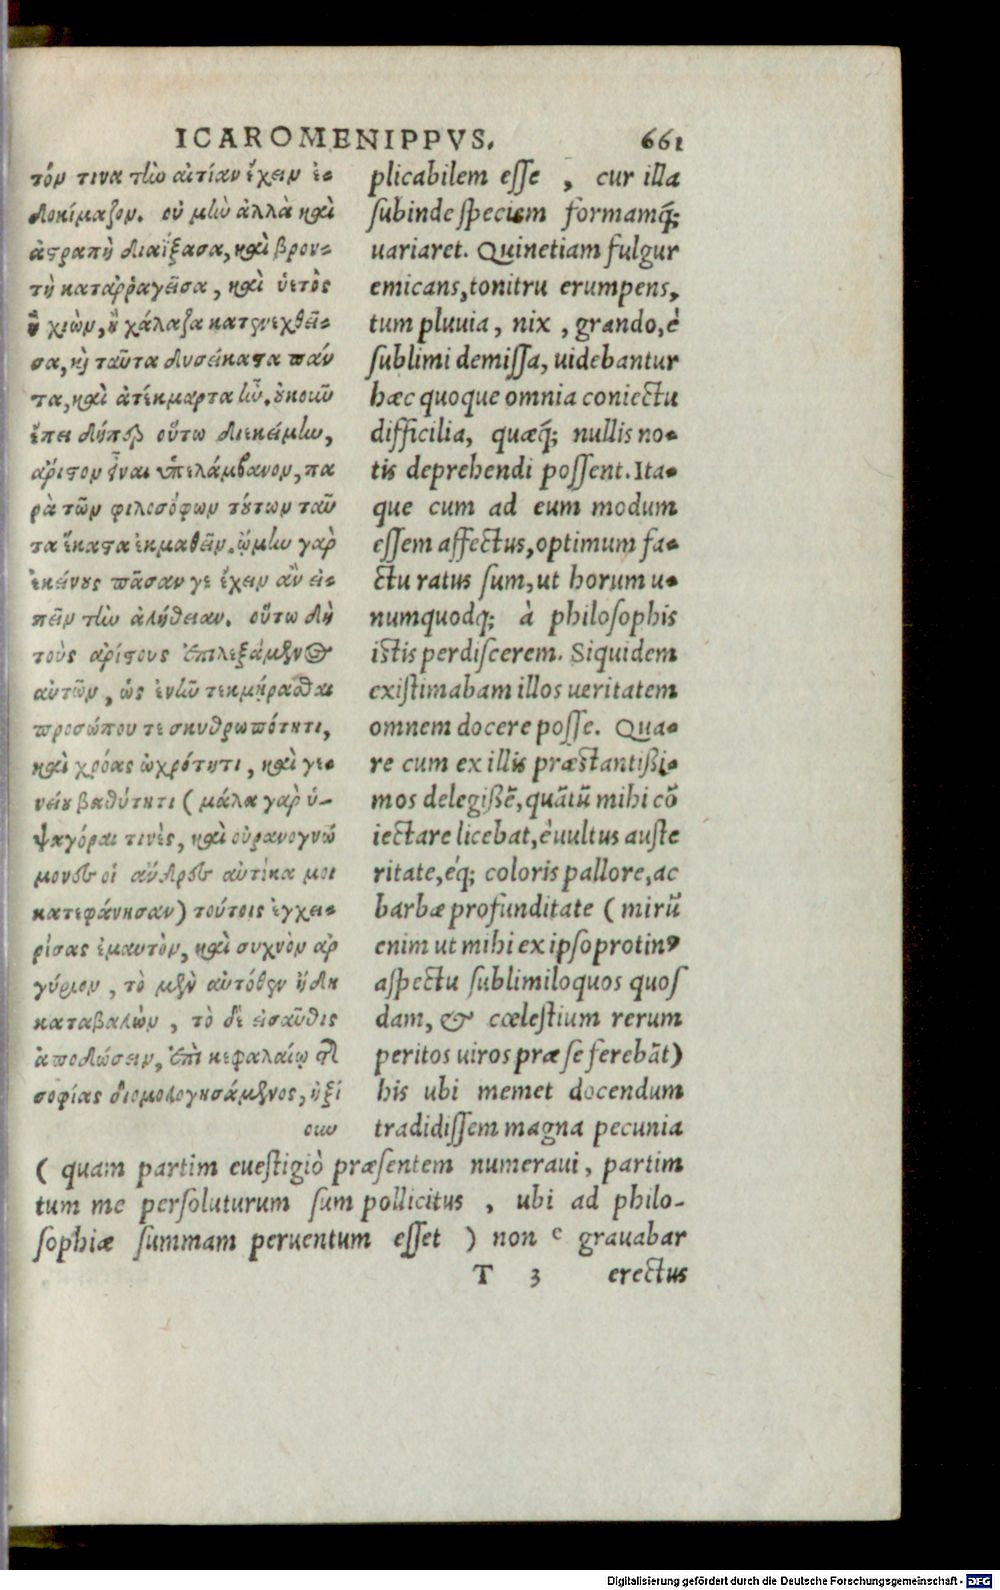 ICAROMENIPPVS. 661
τόν τινα τὴν αἰτίαν ἔχειν ἐ-
δοκίμαζον. οὐ μὴν ἀλλὰ καὶ
ἀστραπὴ διαΐξασα, καὶ βρον-
τὴ καταῤῥαγεῖσα, καὶ ὑετὸς
ἢ χιὼν, ἢ χάλαζα κατενεχθεῖ-
σα, καὶ ταῦτα δυσείκαστα πάν
τα, καὶ ἀτέκμαρτα ἦν. οὐκοῦν
ἔπει δήπερ οὕτω διεκείμην,
ἄριστον εἶναι ὑπελάμβανον, πα
ρὰ τῶν φιλοσόφων τούτων ταῦ
τα ἕκαστα ἐκμαθεῖν. ᾤμην γὰρ
ἐκείνους πᾶσαν γε ἔχειν ἂν εἰ-
πεῖν τὴν ἀλήθειαν. οὕτω δὴ
τοὺς ἀρίστους ἐπιλεξάμενος
αὐτῶν, ὡς ἐνῆν τεκμήρασθαι
προσώπου τε σκυθρωπότητι,
καὶ χρόας ὠχρότητι, καὶ γε-
νείου βαθύτητι (μάλα γὰρ ὑ-
ψαγόραι τινὲς, καὶ οὐρανογνώ
μονες οἱ ἄνδρες αὐτίκα μοι
κατεφάνησαν) τούτοις ἐγχει-
ρίσας ἐμαυτὸν, καὶ συχνὸν ἀρ
γύριον, τὸ μὲν αὐτόθεν ἤδη
καταβαλὼν, τὸ δὲ εἰσαῦθις
ἀποδώσειν, ἐπὶ κεφαλαίῳ τῆς
σοφίας διομολογησάμενος, ἠξί
ουν
plicabilem esse, cur illa
subinde speciem formamq́;
uariaret. Quinetiam fulgur
emicans, tonitru erumpens,
tum pluuia, nix, grando, è
sublimi demissa, uidebantur
hæc quoque omnia coniectu
difficilia, quæq́; nullis no-
tis deprehendi possent. Ita-
que cum ad eum modum
essem affectus, optimum fa-
ctu ratus sum, ut horum u-
numquodq; à philosophis
istis perdiscerem. Siquidem
existimabam illos ueritatem
omnem docere posse. Qua-
re cum ex illis præstantißi-
mos delegißē, quātū mihi cō
iectare licebat, è uultus auste
ritate, éq; coloris pallore, ac
barbæ profunditate (mirū
enim ut mihi ex ipso protinꝰ
aspectu sublimiloquos quos
dam, & cœlestium rerum
peritos uiros præ se ferebāt)
his ubi memet docendum
tradidissem magna pecunia
( quam partim euestigiò præsentem numeraui, partim
tum me persoluturum sum pollicitus, ubi ad philo-
sophiæ summam peruentum esset ) non c grauabar
T 3 erectus
Digitalisierung gefördert durch die Deutsche Forschungsgemeinschaft - DFG